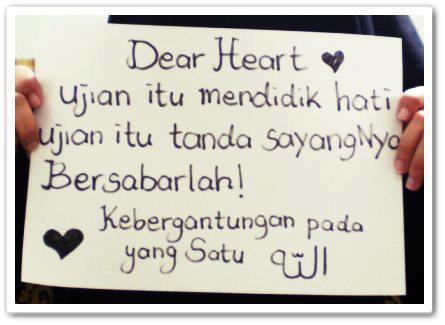 Dear Heart ♥
ujian itu mendidik hati
ujian itu tanda sayangNya
Bersabarlah!
Kebergantungan pada
yang Satu الله